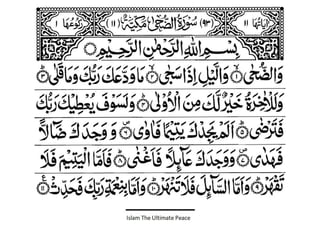 اٰیَاتُهَا ۱۱ (۹۳) سُوْرَةُ الضُّحٰى مَكِّيَّةٌ (۱۱) رُكُوْعُهَا ۱
بِسْمِ اللهِ الرَّحْمٰنِ الرَّحِيْمِ
وَالضُّحٰى ۙ﴿۱﴾ وَالَّيْلِ اِذَا سَجٰى ۙ﴿۲﴾ مَا وَدَّعَكَ رَبُّكَ وَمَا قَلٰى ؕ﴿۳﴾
وَلَلْاٰخِرَةُ خَيْرٌ لَّكَ مِنَ الْاُوْلٰى ؕ﴿۴﴾ وَلَسَوْفَ يُعْطِيْكَ رَبُّكَ
فَتَرْضٰى ؕ﴿۵﴾ اَلَمْ يَجِدْكَ يَتِيْمًا فَاٰوٰى ۪﴿۶﴾ وَ وَجَدَكَ ضَآلًّا
فَهَدٰى ۪﴿۷﴾ وَوَجَدَكَ عَآئِلًا فَاَغْنٰى ؕ﴿۸﴾ فَاَمَّا الْيَتِيْمَ فَلَا
تَقْهَرْ ؕ﴿۹﴾ وَاَمَّا السَّآئِلَ فَلَا تَنْهَرْ ؕ﴿۱۰﴾ وَاَمَّا بِنِعْمَةِ رَبِّكَ فَحَدِّثْ ﴿۱۱﴾
Islam The Ultimate Peace